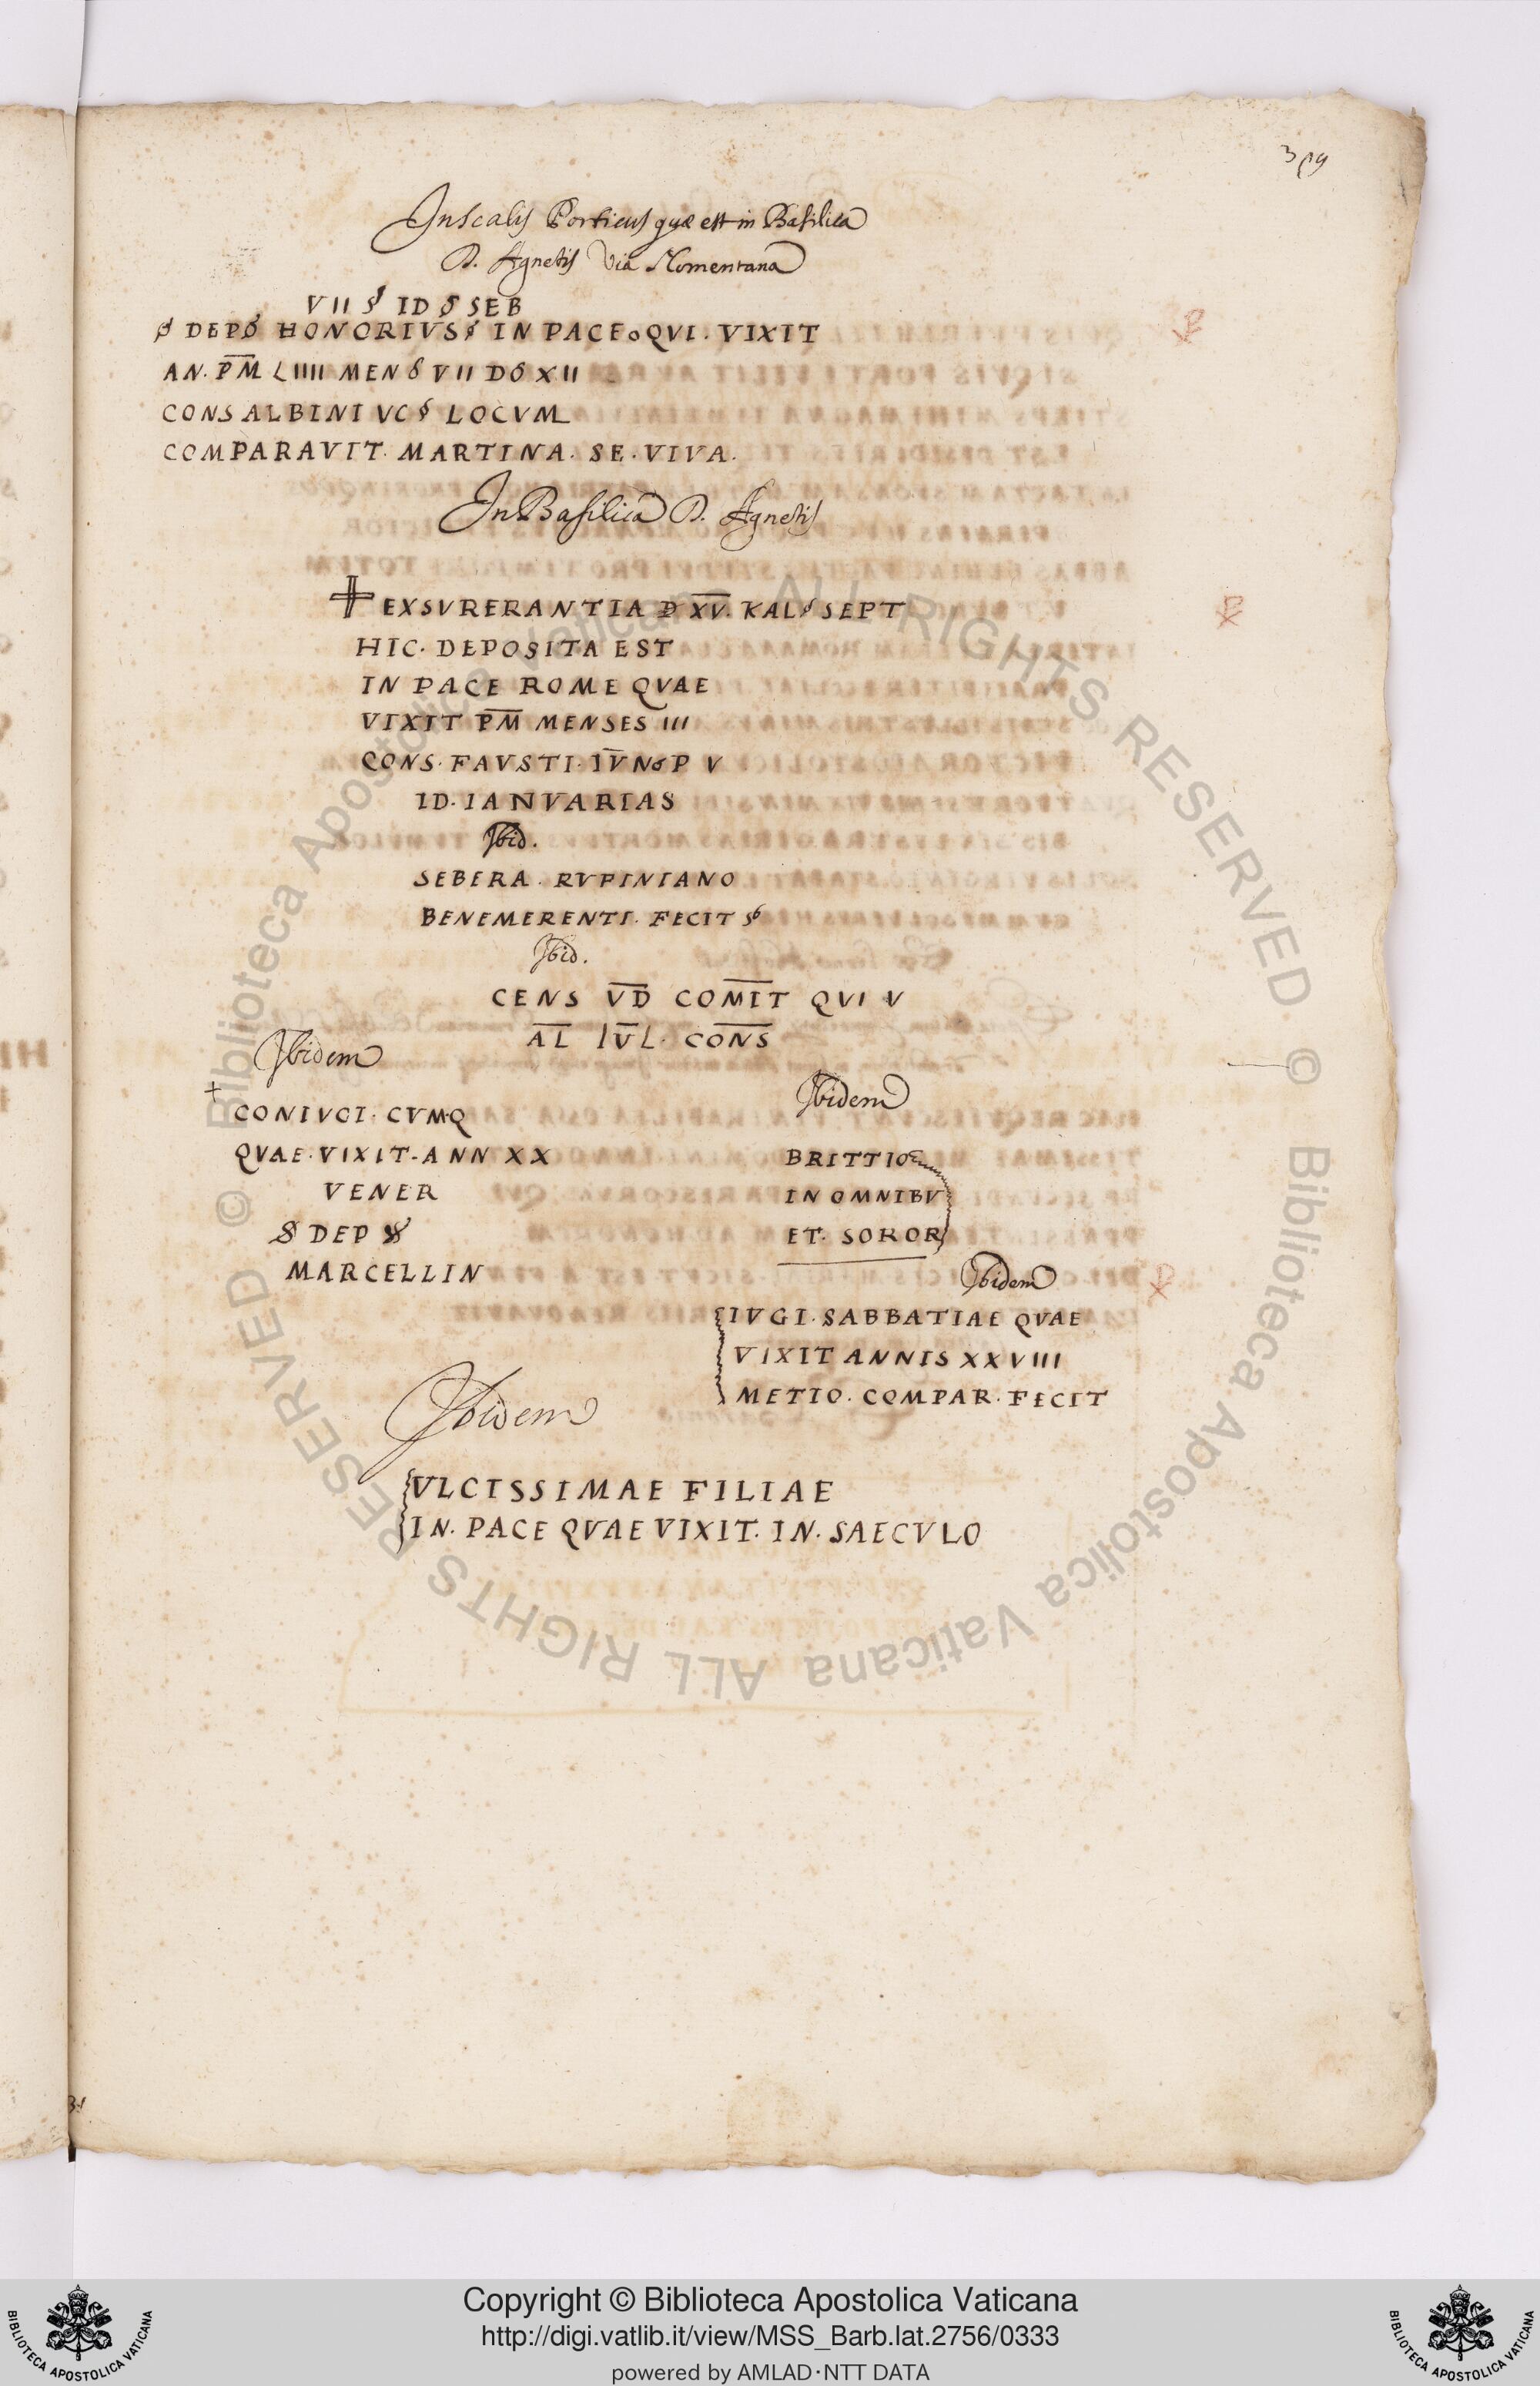 319
In scalis Porticus quæ est in Basilica
D. Agnetis Via Nomentana
VII § ID § SEB
DEP HONORIVS § IN PACE QVI . VIXIT
AN. P̅M̅ LIIII MEN VII D XII
CONS ALBINI VC § LOCVM
COMPARAVIT. MARTINA. SE. VIVA.
In Basilica D. Agnetis
EXSVRERANTIA D X̅V̅. KAL SEPT
HIC. DEPOSITA EST
IN PACE ROME QVAE
VIXIT P̅M̅ MENSES III
CONS. FAVSTI. IV̅N P V
ID. IANVARIAS
Ibid.
SEBERA. RVPINIANO
BENEMERENTI. FECIT
Ibid.
CENS V̅D̅ COM̅I̅T̅ QVI V
A̅L̅ IV̅L. CO̅N̅S̅
Ibidem
+
CONIVGI. CVM.Q
QVAE. VIXIT. ANN XX
VENER
DEP
MARCELLIN
Ibidem
BRITTIO
IN OMNIBV
ET. SOROR
Ibidem
IVGI. SABBATIAE QVAE
VIXIT ANNIS XXVIII
METIO. COMPAR. FECIT
Ibidem
VLCISSIMAE FILIAE
IN. PACE QVAE VIXIT. IN. SAECVLO
© Biblioteca Apostolica Vaticana ALL RIGHTS RESERVED © Biblioteca Apostolica Vaticana ALL RIGHTS RESERVED
Copyright © Biblioteca Apostolica Vaticana
http://digi.vatlib.it/view/MSS_Barb.lat.2756/0333
powered by AMLAD·NTT DATA
BIBLIOTECA APOSTOLICA VATICANA
BIBLIOTECA APOSTOLICA VATICANA